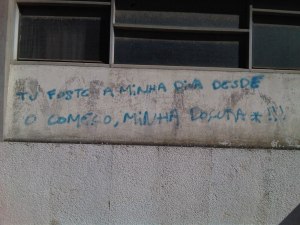 TU FOSTE A MINHA DIVA DESDE
O COMEÇO, MINHA *!!!